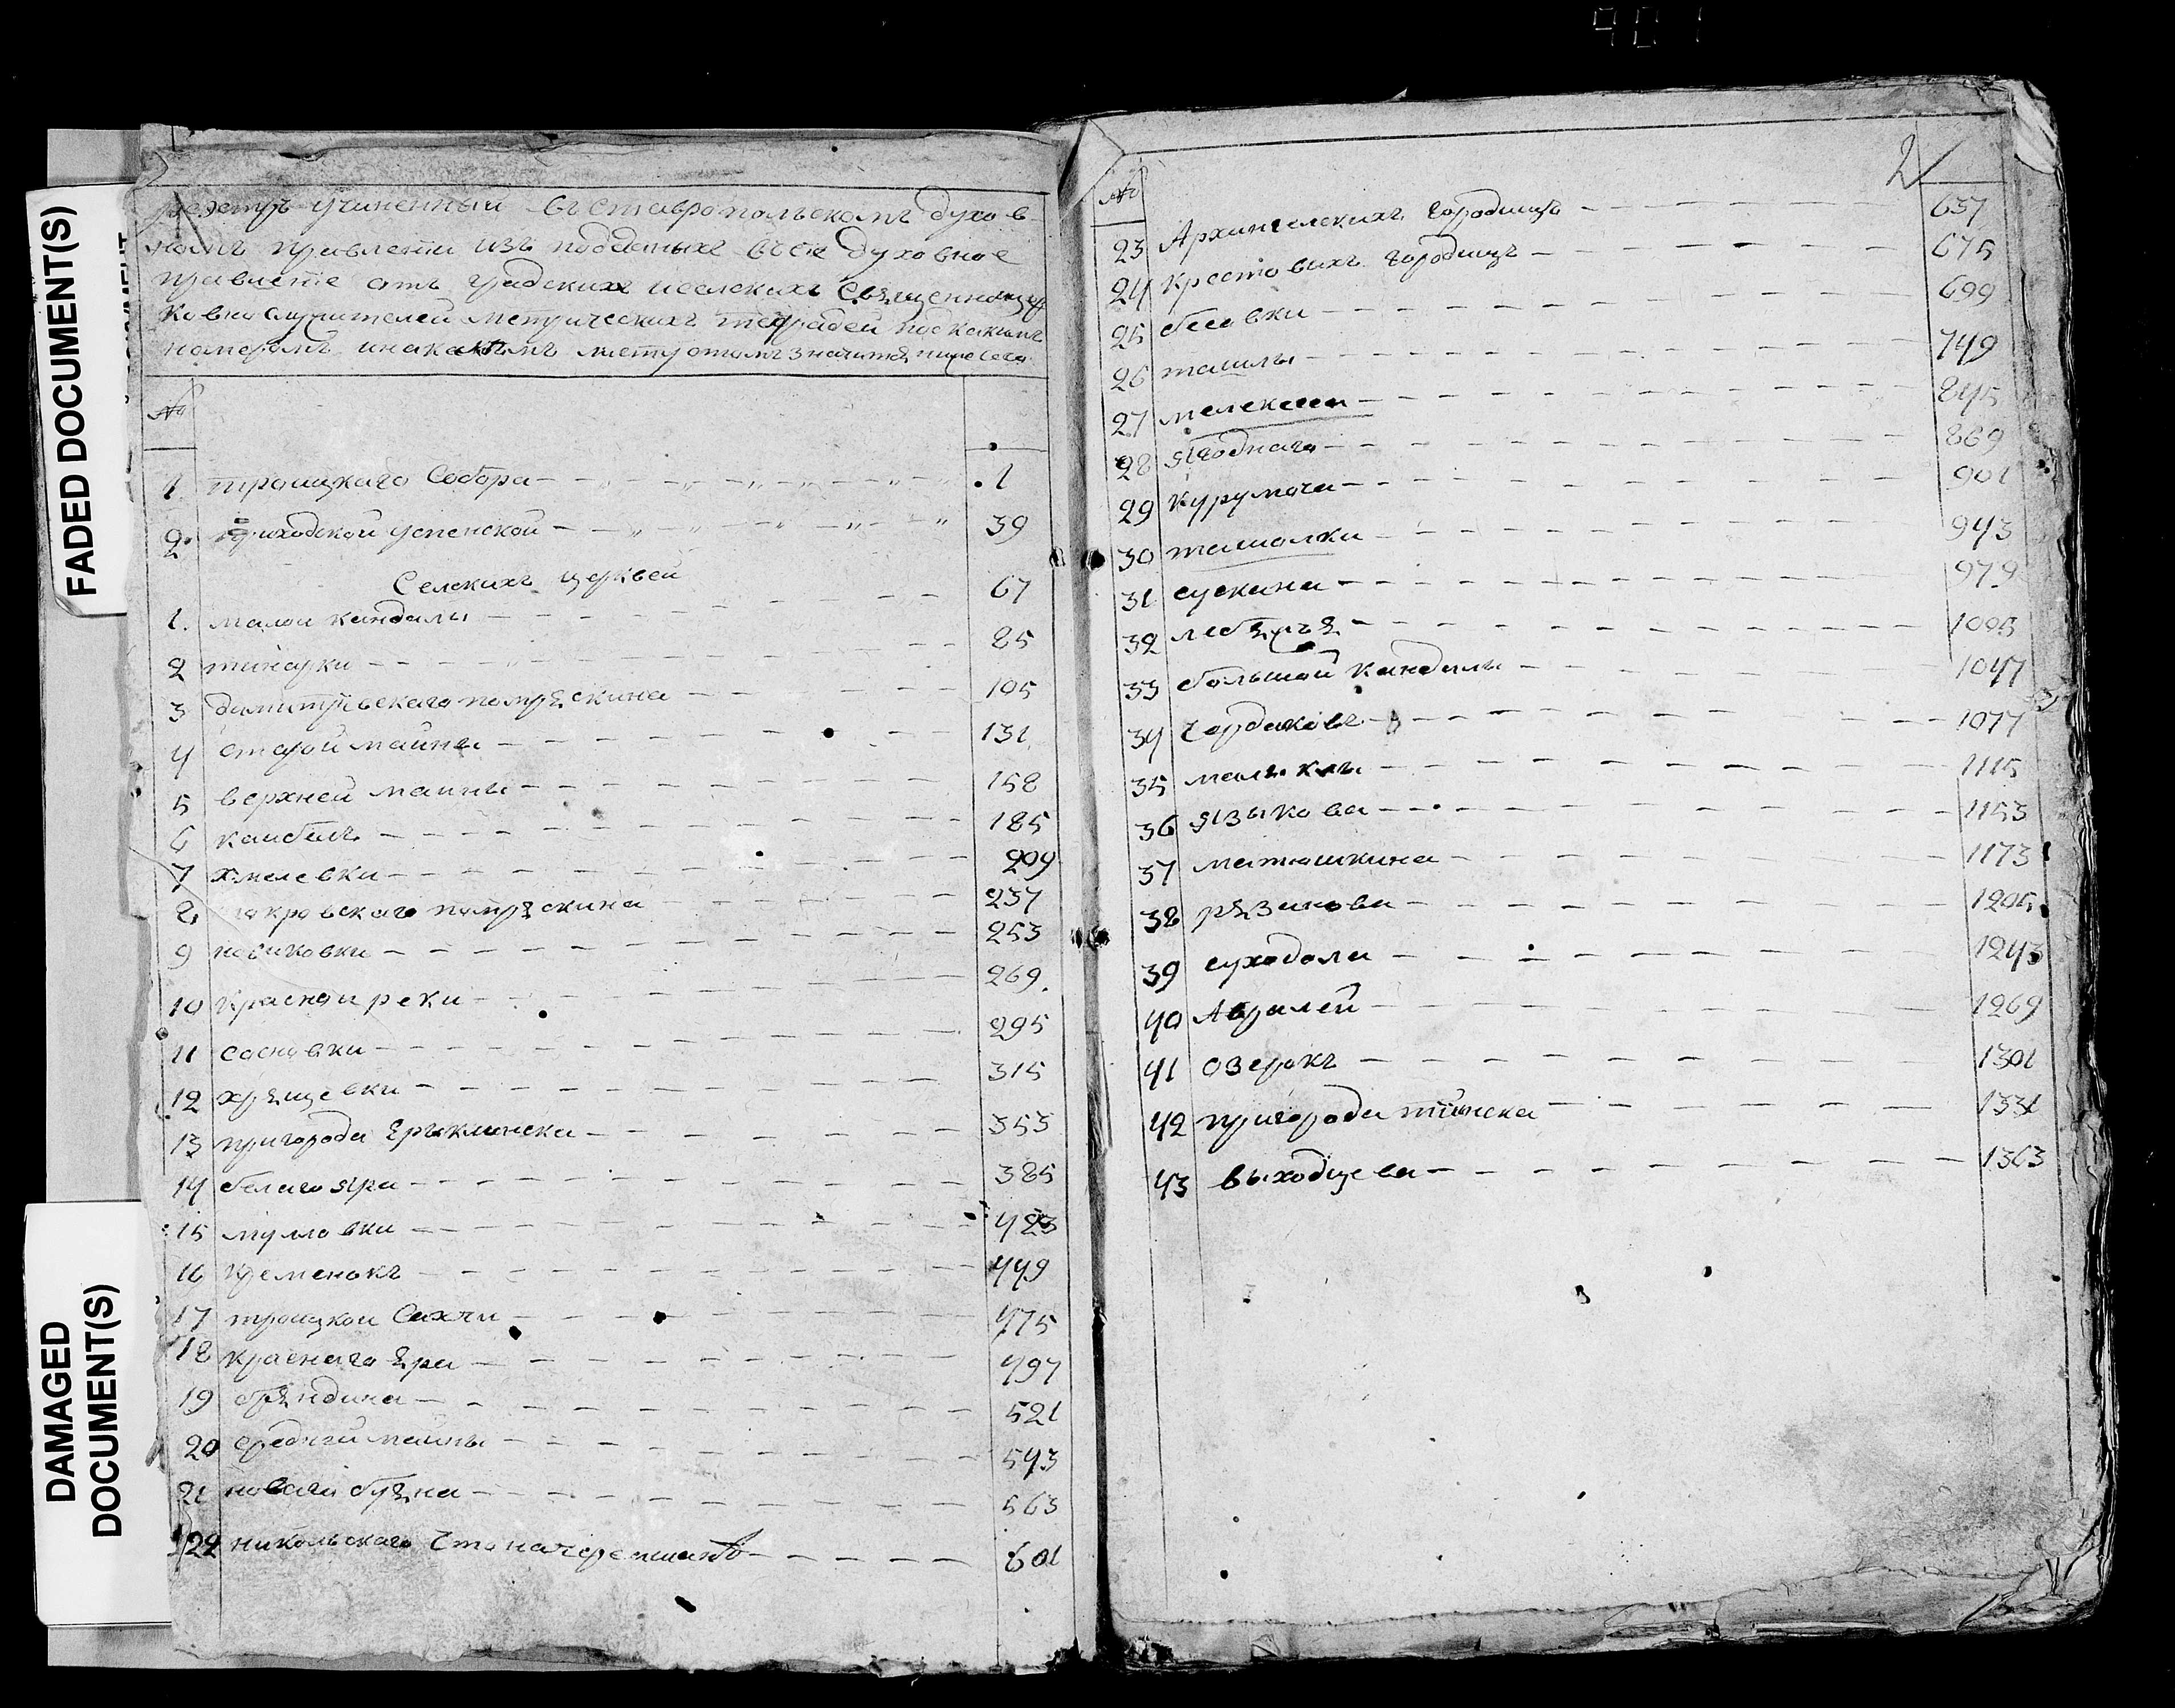 FADED DOCUMENT(S)
DAMAGED
DOCUMENT(S)
реэстръ учиненный въ ставропольскомъ духов
номъ правлении изъ поданныхъ въ сие духовное
правление отъ градскихъ и селскихъ священно цер
ковно служителей метрическихъ тетрадей под какимъ
номеромъ и на какомъ листу о томъ значитъ ниже сего
№
1. троицкаго Собора 1
2. приходской успенской 39
Селскихъ церквей
1. малой кандалы 67
2 тинарки 85
3 димитрiевскаго помряскина 105
4 старой майны 131
5 верхней майны 158
6 каибелъ 185
7 хмелевки 209
8 покровскаго помряскина 237
9 новиковки 253
10 красной реки 269.
11 сосновки 295
12 хрящевки 315
13 пригорода Ерыклинска 353
14 белаго яра 385
15 мулловки 423
16 кременокъ 449
17 троицкой Сахчи 475
18 краснаго яра 497
19 бряндина 521
20 средней майны 543
21 новаго буяна 563
22 никольскаго что на черемшанѣ 601
2
№
23 Архангелскихъ городищъ 637
24 крестовыхъ городищъ 675
25 бесовки 699
26 ташлы 749
27 мелекеса 845
28 ягоднаго 869
29 курумоча 901
30 ташолки 943
31 сускина 979
32 лебяжья 1005
33 большой кандалы 1047
34 чардаковъ 1077
35 малыклы 1115
36 языкова 1153
37 матюшкина 1173
38 рязанова 1205
39 суходола 1243
40 Авралей 1269
41 озерокъ 1301
42 пригорода тиинска 1331
43 выходцева 1363